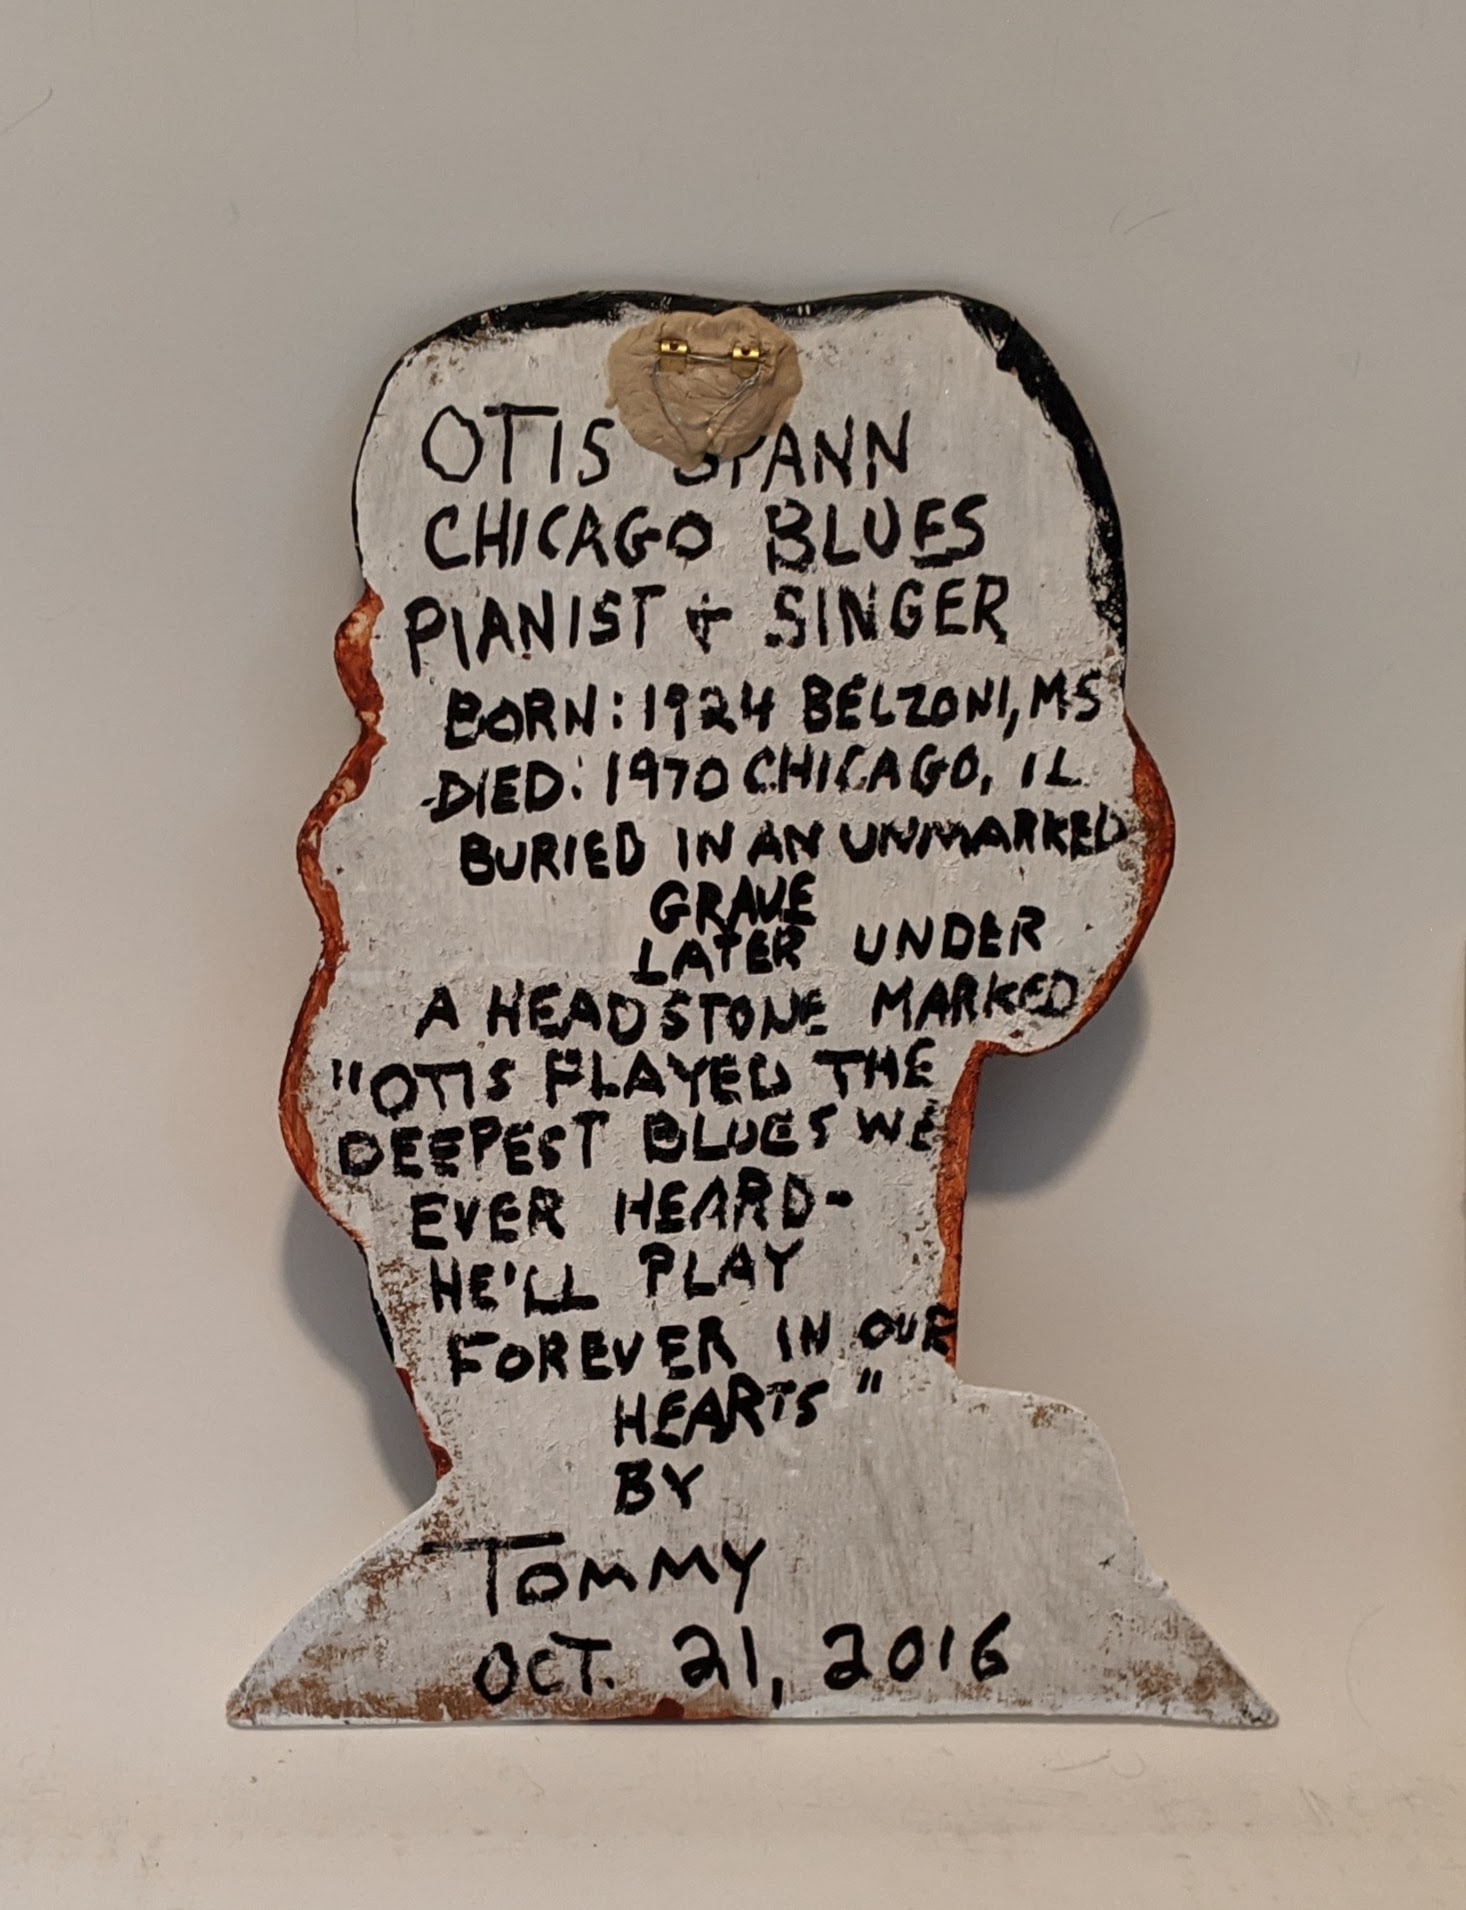 OTIS SPANN
CHICAGO BLUES
PIANIST + SINGER
BORN: 1924 BELZONI, MS
DIED: 1970 CHICAGO, IL
BURIED IN AN UNMARKED
GRAVE
LATER UNDER
A HEADSTONE MARKED
"OTIS PLAYED THE
DEEPEST BLUES WE
EVER HEARD-
HE'LL PLAY
FOREVER IN OUR
HEARTS"
BY
TOMMY
OCT. 21, 2016